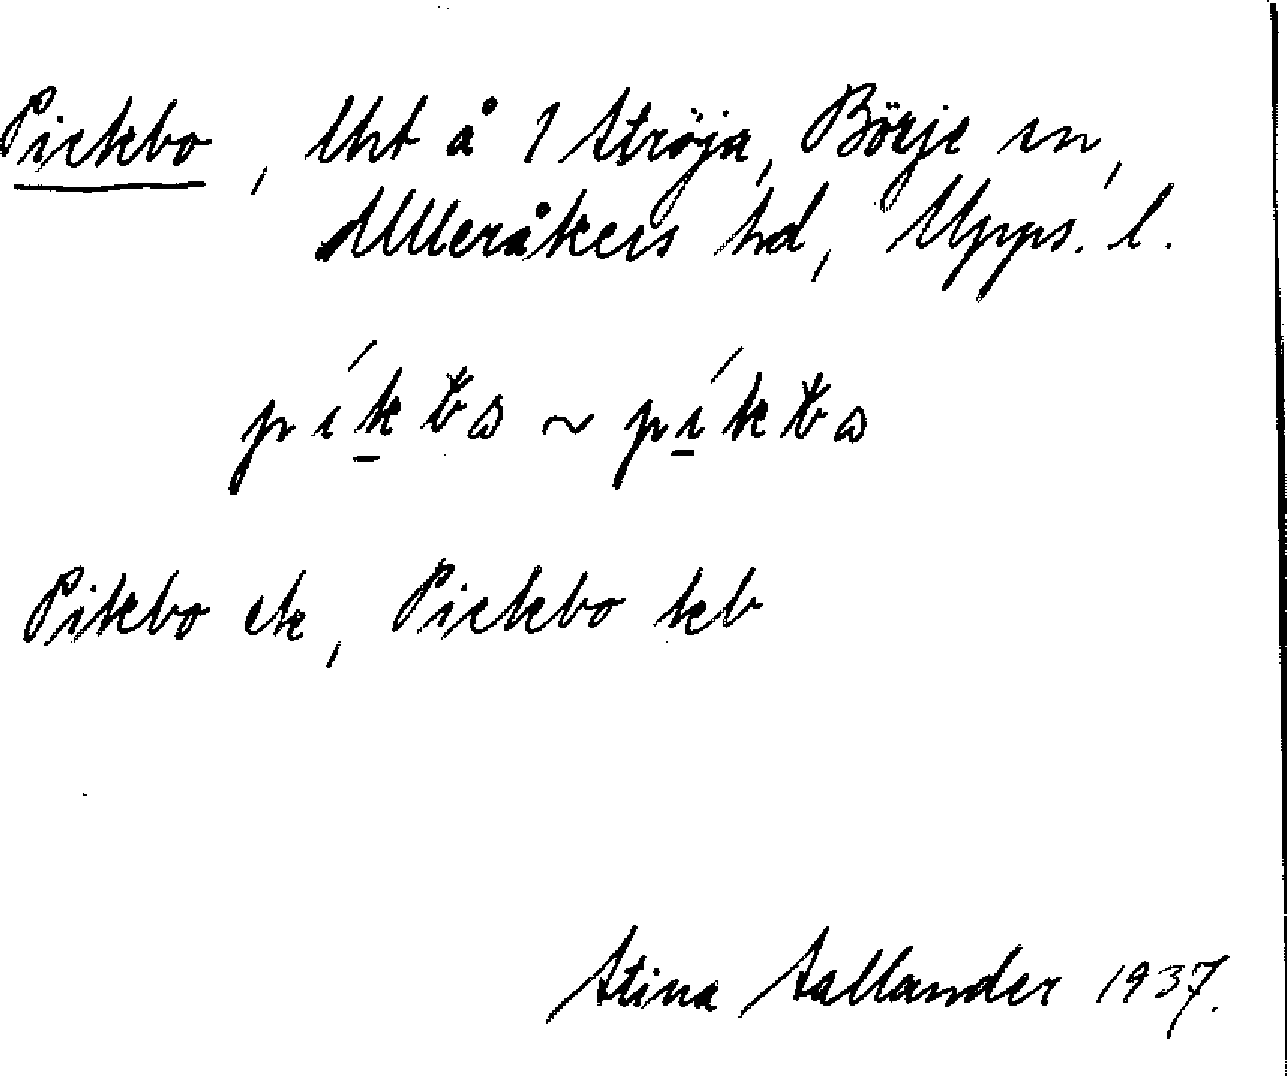 Pickbo, lht å 1 Ströja, Börje sn,
Ulleråkers hd, Upps. l.
Pikbo ek, Pickbo kb
Stina Sallander 1937.